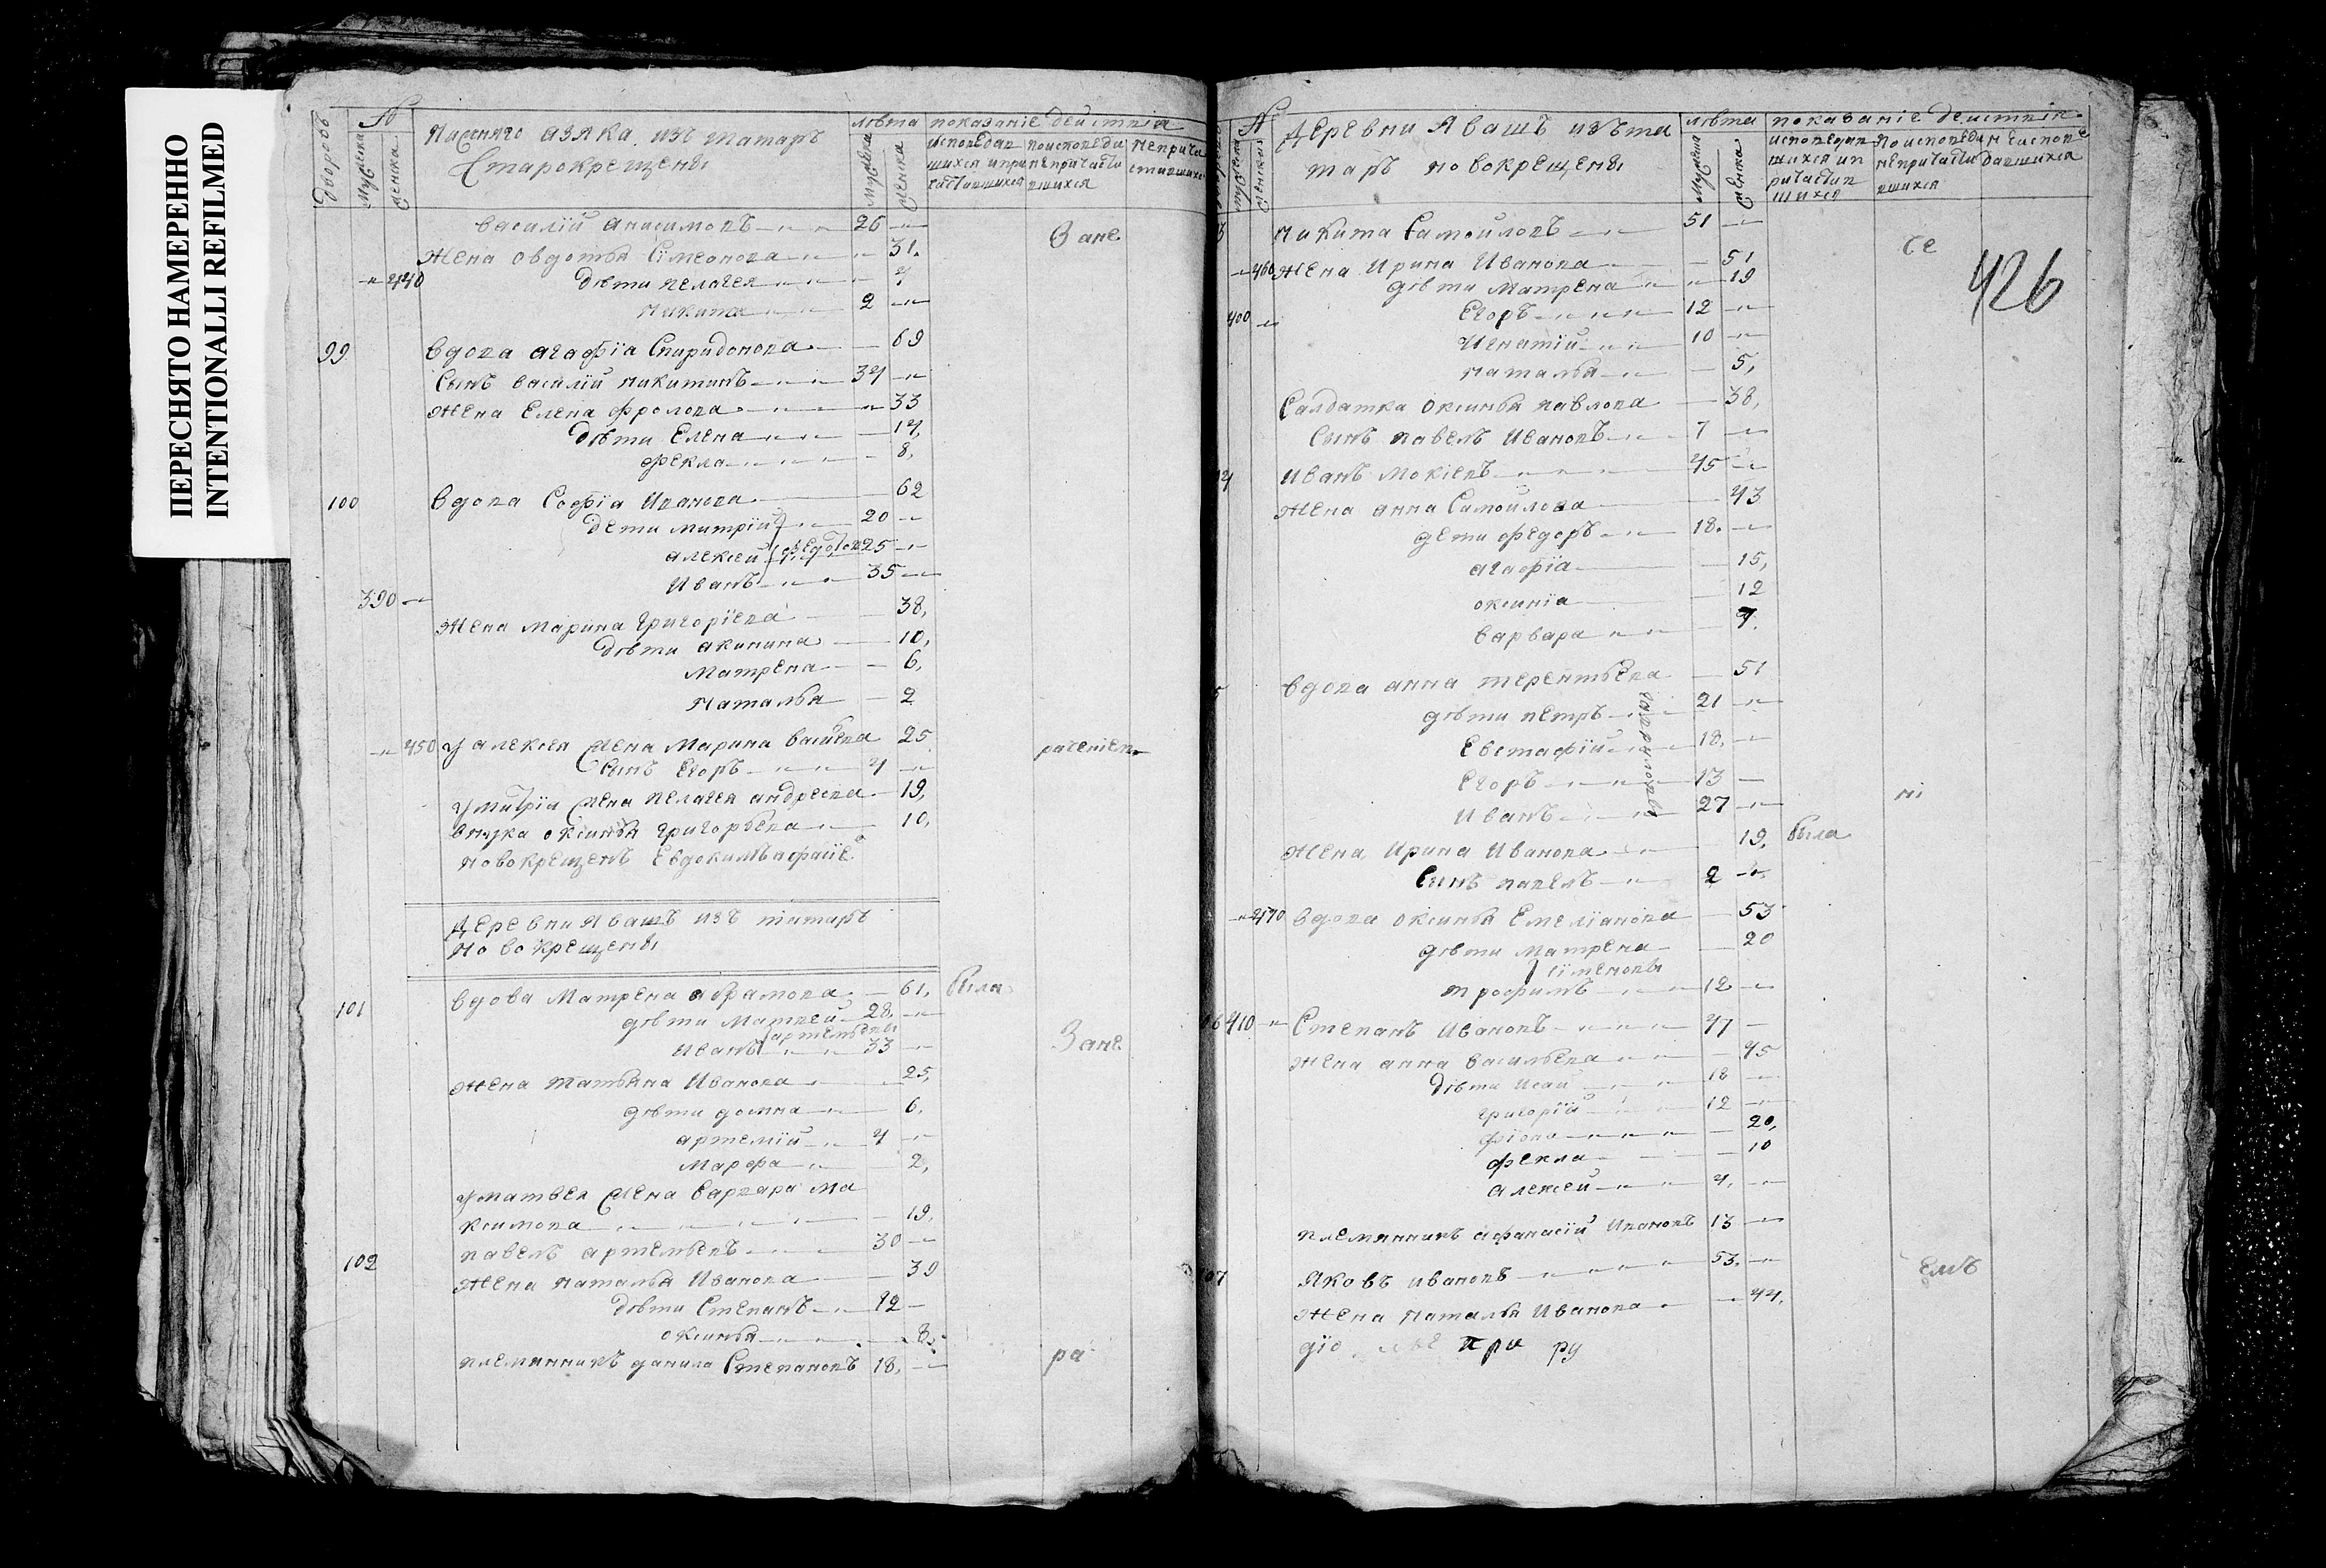 ПЕРЕСНЯТО НАМЕРЕННО
INTENTIONALLI REFILMED
дворовъ
№
мужеска
женска
Нижняго азяка изъ татаръ
Старокрещены
лѣта
мужеска
женска
показаніе деиствія
исповедав
шихся и при
частившихся
по исповеди
непричасти
вшихся
неприча
стившихся
василій анисимовъ 26
Зане
жена овдотья Сімеонова 31.
440 дѣти пелагея 4
никита 2
99 вдова агафїа Спиридонова 69
сынъ василїй никитинъ 34
жена Елена фролова 33
дѣти Елена 14,
фекла 8,
100 вдова Софїа Иванова 62
дети митрїй 20
алексей федотов 25
Иванъ 35
390
жена марина григорїева 38,
дѣти акилина 10,
матрена 6,
наталья 2
450 у алексея жена марина васил̾ева 25
рачением
сынъ Егоръ 4
у митрїа жена пелагея андреева 19,
внука оксинья григорьева 10,
новокрещенъ Евдокимъ афасїе
деревни явашъ изъ татаръ
новокрещены
101 вдова матрена абрамова 61, была
дѣти матвей 28,
артемьевы
Иванъ 33
Зане
жена татьяна Иванова 25,
дѣти домна 6,
артемїй 4
марфа 2,
у матвея жена варвара ма
ксимова 19,
102 павелъ артемьевъ 30
жена наталья Иванова 39
дѣти Степанъ 12
оксинья 8,
племянникъ данила Степановъ 18,
ра
№
женска
деревни явашъ изъ та
таръ новокрещены
лѣта
мужеска
женска
показаніе деиствія
исповедав
шихся и п
ричастив
шихся
по исповеди
непричасти
вшихся
не испове
давшихся
3 никита Самойловъ 51
се
426
460 жена Ирина Иванова 51
дѣти матрена 19
400 Егоръ 12
Игнатїй 10
наталья 5,
Салдатка оксинья павлова 38,
сынъ павелъ Ивановъ 7
4 иванъ мокїевъ 45
жена анна Самойлова 43
дети федоръ 18.
агафїа 15,
оксинїа 12
варвара 7.
5 вдова анна терентьева 51
дѣти петръ 21
Евстафїй 18,
Егоръ 13
Иванъ 27
ні
жена Ирина Иванова 19, была
сынъ павелъ 2
470 вдова оксинья Емелїанова 53
дѣти матрена 20
сїменовы
трофимъ 12
6 410 Степанъ Ивановъ 47
жена анна васильева 45
дѣти Исай 18
григорїй 12
фїона 20,
фекла 10
алексей 4,
племянникъ афанасїй Ивановъ 13
07 яковъ ивановъ 53,
емъ
жена наталья Иванова 44,
дїо при ру